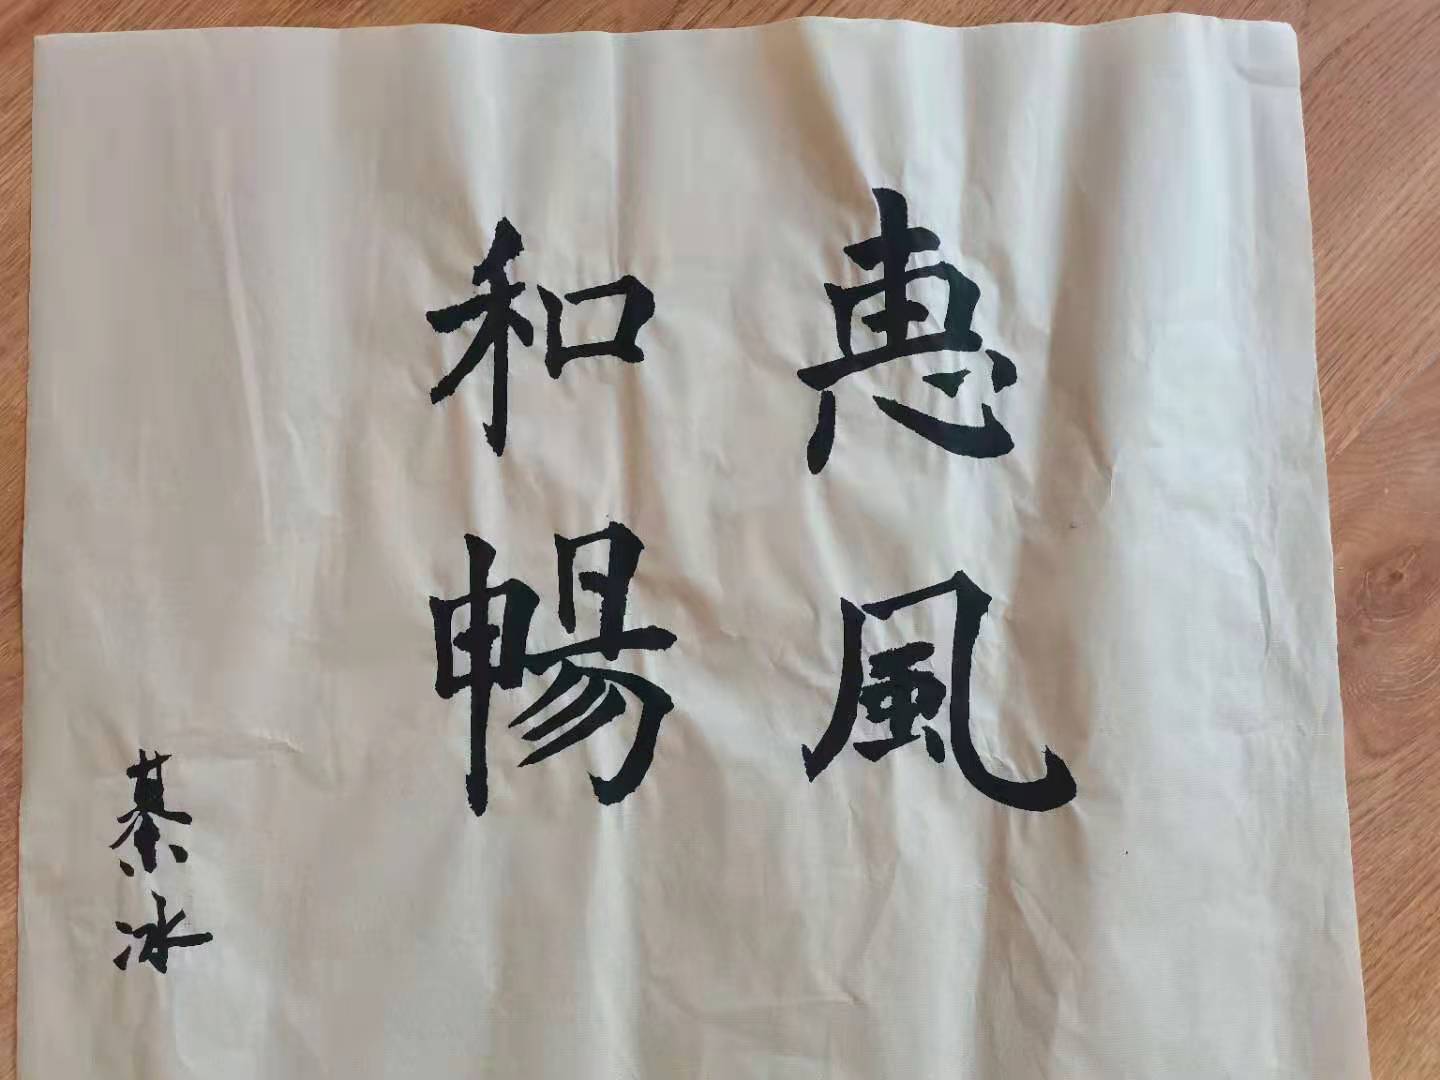 惠風
和暢
綦冰